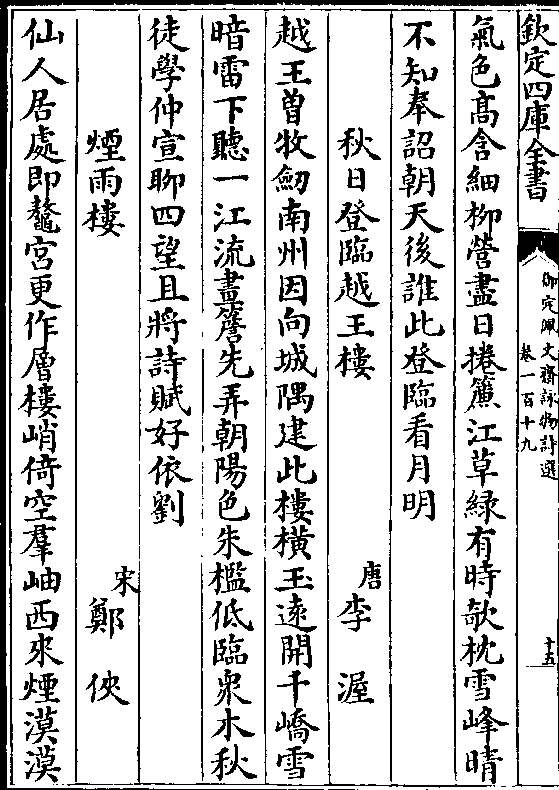 欽定四庫全書
御定佩文齋詠物詩選
卷一百十九
十五
氣色髙含細栁營盡日捲簾江草緑有時欹枕雪峰晴
不知奉詔朝天後誰此登臨看月明
秋日登臨越王樓
唐李渥
越王曽牧劒南州因向城隅建此樓橫玉逺開千嶠雪
暗雷下聽一江流畫簷先弄朝陽色朱檻低臨衆木秋
徒學仲宣聊四望且將詩賦好依劉
煙雨樓
宋鄭俠
仙人居處即鼇宮更作層樓峭倚空羣岫西來煙漠漠